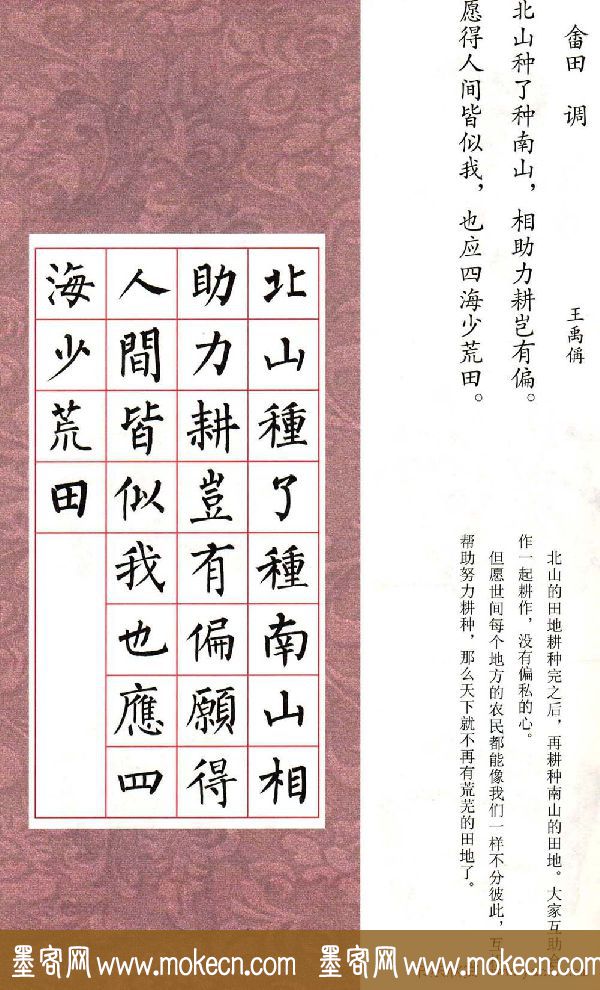 畲田 调
王禹偁
北山种了种南山，相助力耕岂有偏。
愿得人间皆似我，也应四海少荒田。
北山的田地耕种完之后，再耕种南山的田地。大家互助合
作一起耕作，没有偏私的心。
但愿世间每个地方的农民都能像我们一样不分彼此，互
帮助努力耕种，那么天下就不再有荒芜的田地了。
北山種了種南山相
助力耕豈有偏願得
人間皆似我也應四
海少荒田
墨客网 www.mokecn.com 墨客网 www.mokecn.com